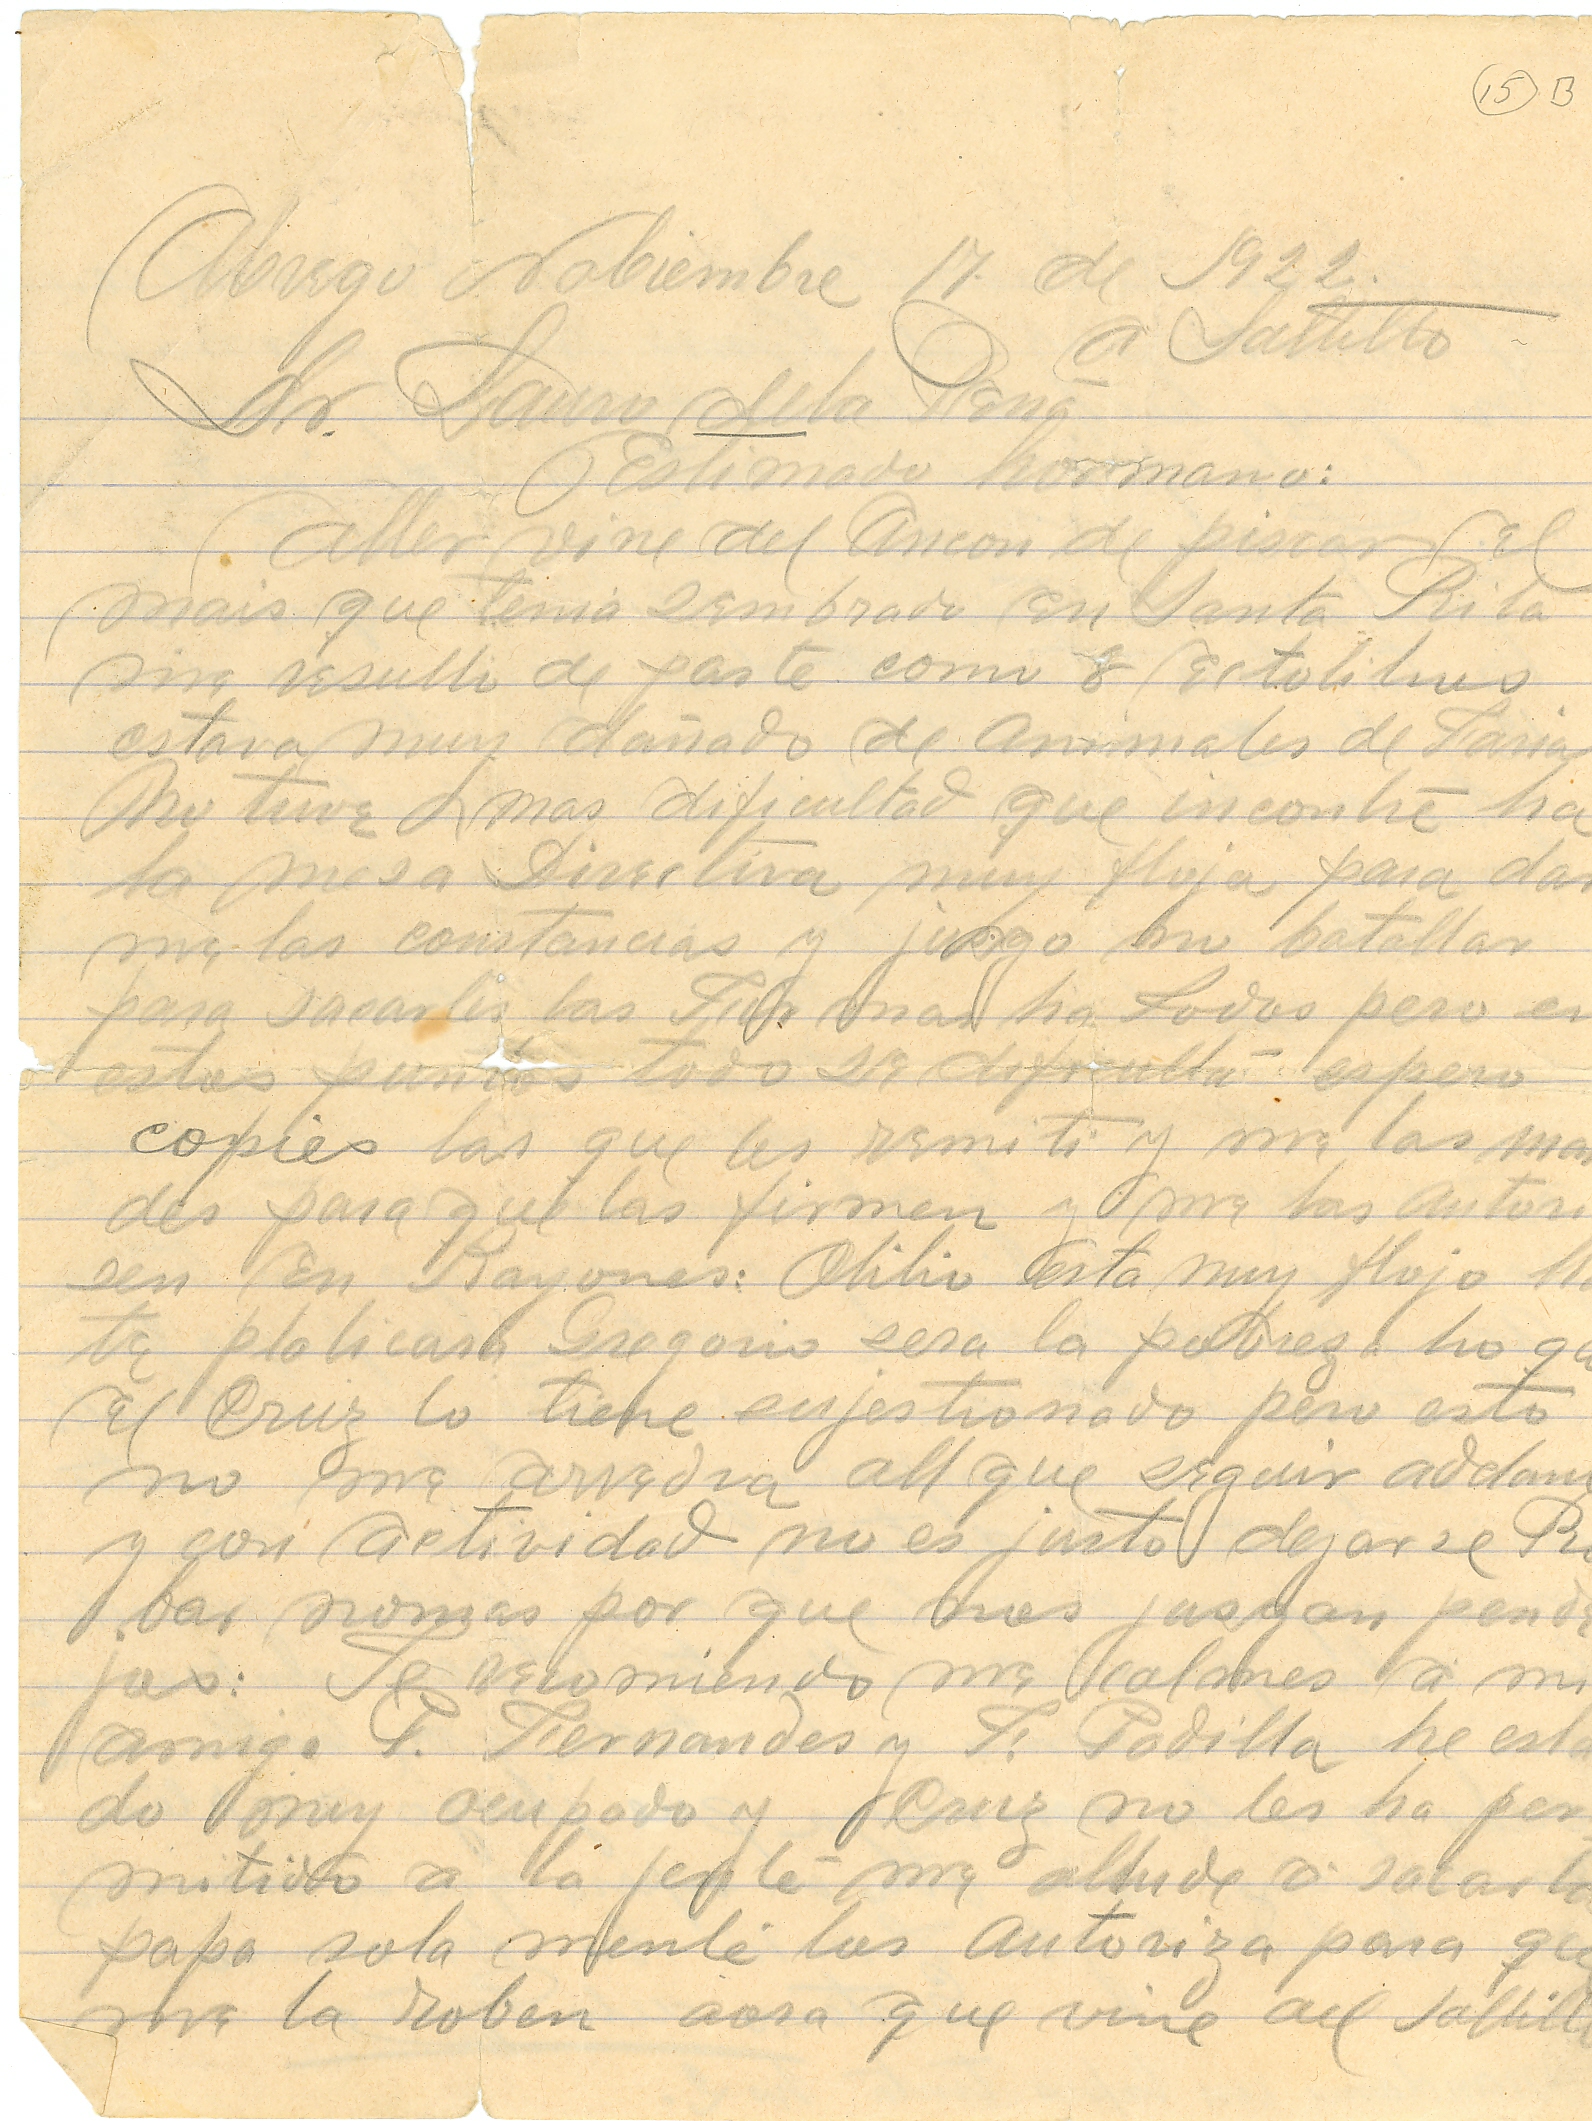 15 B
Abrego Nobiembre 17 de 1922.
a Saltillo
Sr. Lauro dela Peña
Estimado hormano:
Aller vine del Ancon de piscar el
mais que tenia sembrado en Santa Rita
me resulto de parte como 8 Ectolitros
estava muy dañado de animales de
No tuve mas dificultad que incontré ha
la mesa Directiva muy floja para dar
me las constancias y jusgo no batallar
para sacarles las Firmas ha Todos pero en
estos puntos todo se dificulta espero
copies las que les remiti y me las man
des para que las firmen y me las autori
sen en Rayones: Otilio esta muy flojo
te platicara Gregorio sera la pobreza ho que
el Cruz lo tiene sujestionado pero esto
no me arredra all que seguir addant
y con actividad no es justo dejarse Ro
bar nomas por que nos jusgan pende
jos: Te recomiendo me calmes a mi
amigo P. Fernandes y F. Padilla he esta
do muy ocupado y Cruz no les ha per
mitido a la jente me allude a sacar la
papa sola mente los autoriza para que
me la roben aora que vine del Saltillo